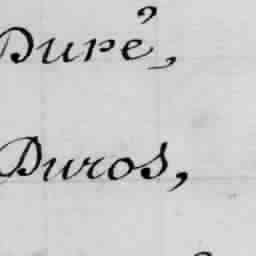 Duré,
Duros,